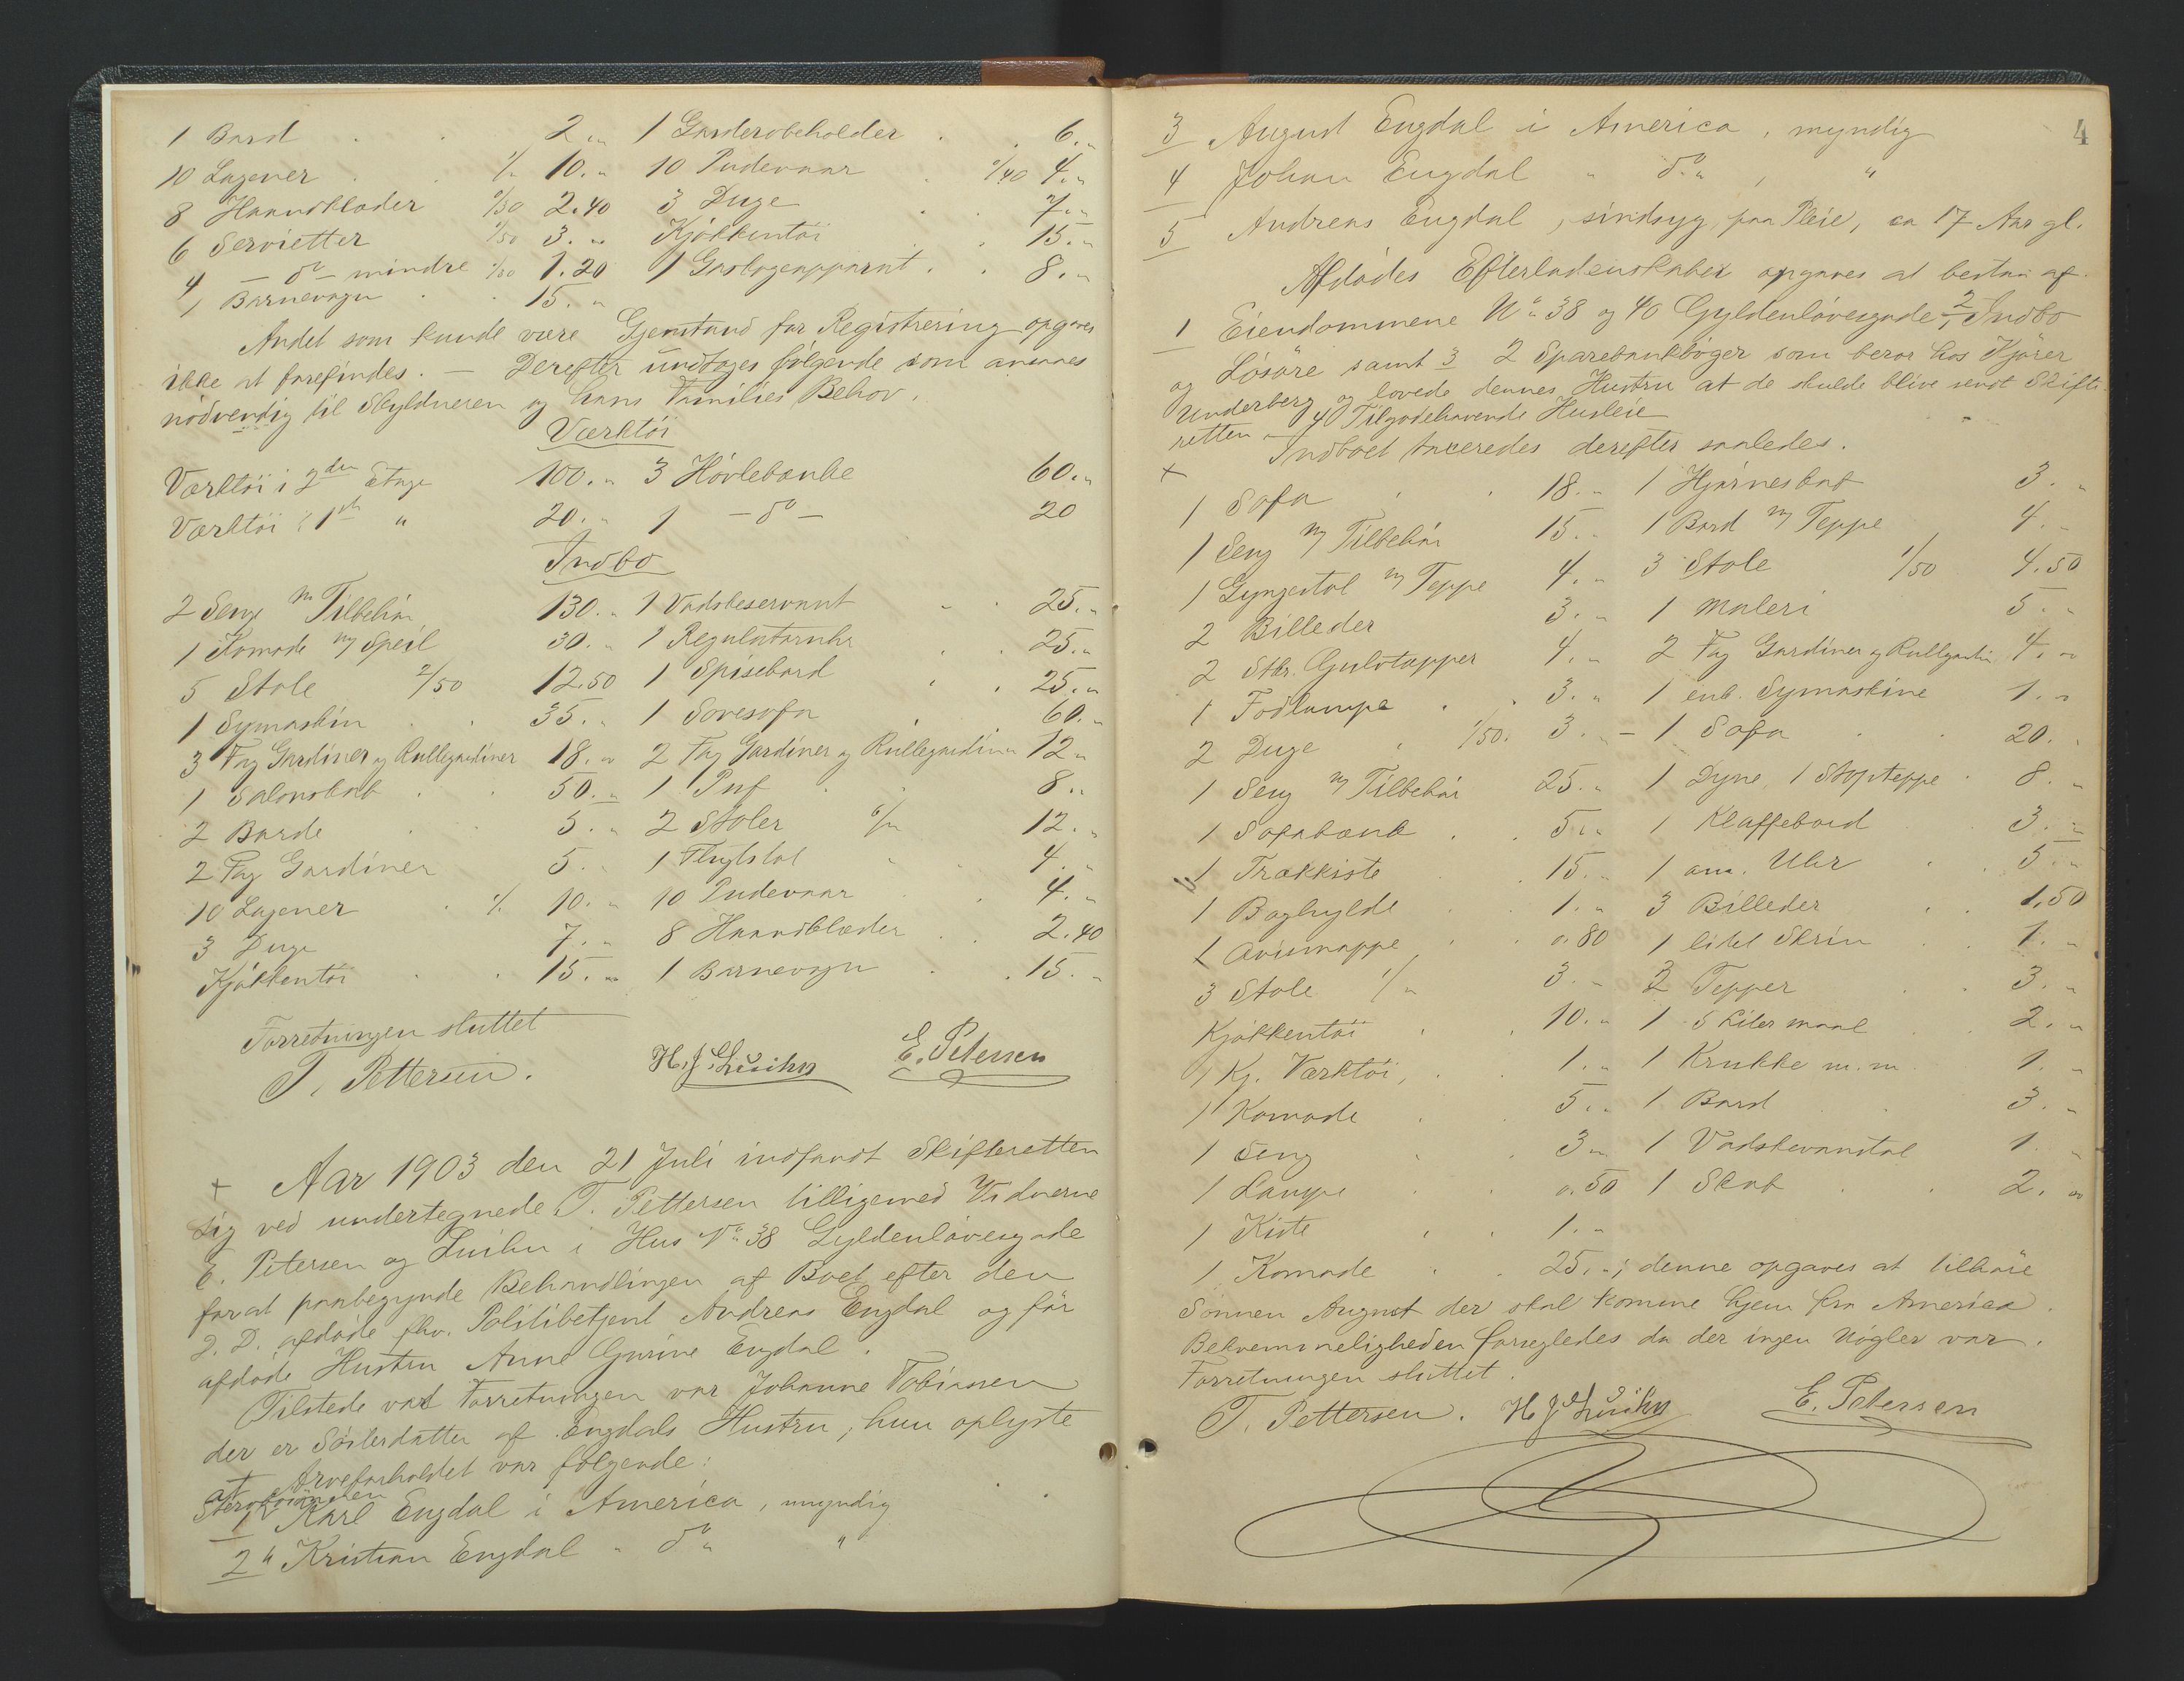 1 Bord . . 2 „ 1 Garderobeholder . . 6. „
10 Lagener . . 1/„ 10. „ 10 Pudevaar . 0/40 4. „
8 Haandklæder 0/30 2.40 3 Duge . . 7. „
6 Servietter 0/50 3. „ Kjøkkentøi . . 15. „
4 – do – mindre 0/30 1.20 1 Gaslogeapparat . . 8. „
1 Barnevogn . . 15. „
Andet som kunde være Gjenstand for Registrering opgaves
ikke at forefindes. – Derefter undtoges følgende som ansaaes
nødvendig til Skyldneren og hans Families Behov.
Værktøi
Værktøi i 2den Etage 100. „ 3 Høvlebænke 60. „
Værktøi i 1ste „ 20. „ 1 – do – 20
Indbo
2 Senge m Tilbehør 130. „ 1 Vadskeservant . . 25. „
1 Komode m/ Speil 30. „ 1 Regulatoruhr . . 25. „
5 Stole 2/50 12.50 1 Spisebord . . 25. „
1 Symaskin . . 35. „ 1 Sovesofa . 60. „
3 Fag Gardiner og Rullegardiner 18. „ 2 Fag Gardiner og Rullegardiner 12 „
1 Salonskab . . 50. „ 1 Puf . . 8. „
2 Borde . . 5. „ 2 Stoler 6/„ 12. „
2 Fag Gardiner 5. „ 1 Flugtstol . . 4. „
10 Lagener . 1/. 10. „ 10 Pudevaar . . 4. „
3 Duge 7. „ 8 Haandklæder . . 2.40
Kjøkkentøi . . 15. „ 1 Barnevogn . . 15. „
Forretningen sluttet
T. Pettersen. H. J. Luihn E. Petersen
+ Aar 1903 den 21 Juli indfandt Skifteretten
sig ved undertegnede T. Pettersen tilligemed Vidnerne
E. Petersen og Luihn i Hus No 38 Gyldenløvesgade
forat paabegynde Behandlingen af Boet efter den
2. D. afdøde fhv. Politibetjent Andreas Engdal og før
afdøde Hustru Anne Gurine Engdal.
Tilstede ved Forretningen var Johanne Tobiasen
der er Søsterdatter af Engdals Hustru; hun oplyste
at Arveforholdet var følgende:
1 Karl Engdal i America, myndig
2 " Kristian Engdal „ do „ "
4
3 August Engdal i America, myndig
4 Johan Engdal „ do „ , "
5 Andreas Engdal, sindsyg, paa Pleie, ca 17 Aar gl.
Afdødes Efterladenskaber opgaves at bestaa af
1 Eiendommene No 38 og 40 Gyldenløvesgade, 2 Indbo
og Løsøre samt 3 2 Sparebankbøger som beror hos Kjører
Underberg og lovede dennes Hustru at de skulde blive sendt Skifte
retten – 4) Tilgodehavende Husleie
+ Indboet taxeredes derefter saaledes.
1 Sofa . . 18. „ 1 Hjørneskab 3. „
1 Seng m/ Tilbehør 15. „ 1 Bord m/ Teppe 4. „
1 Gyngestol m/ Teppe 4. „ 3 Stole 1/50 4.50
2 Billeder 3. „ 1 Maleri 5. „
2 Stkr. Gulvtæpper 4. „ 2 Fag Gardiner og Rullgardin 4. „
1 Fodlampe . . 3. „ 1 enk. Symaskine 1. „
2 Duge . 1/50. 3. „ – 1 Sofa . . 20. „
1 Seng m/ Tilbehør 25. „ 1 Dyne, 1 Stopteppe . 8. „
1 Sofabænk . . 5. „ 1 Klaffebord 3. „
1 Trækkiste . 15. „ 1 am. Uhr . . 5. „
1 Boghylde . . 1. „ 3 Billeder . . 1.50
1 Avismappe . . 0.80 1 lidet Skrin . . 1. „
3 Stole 1/„ 3. „ 2 Tepper . . 3. „
Kjøkkentøi . . 10. „ 1 5 Liter maal . 2. „
1 Kj. Værktøi, . . 1. „ 1 Krukke m. m. 1. „
1 Komode . 5. „ 1 Bord . . 3. „
1 Seng . . 3 „ 1 Vadskevandstol 1. „
1 Lampe . . 0.50 1 Skab . . 2. „
1 Kiste . . 1. „
1 Komode . . 25. „; denne opgaves at tilhøre
Sønnen August der skal komme hjem fra America.
Bekvemmeligheden forsegledes da der ingen Nøgler var.
Forretningen sluttet.
T. Pettersen. H J Luihn E. Petersen